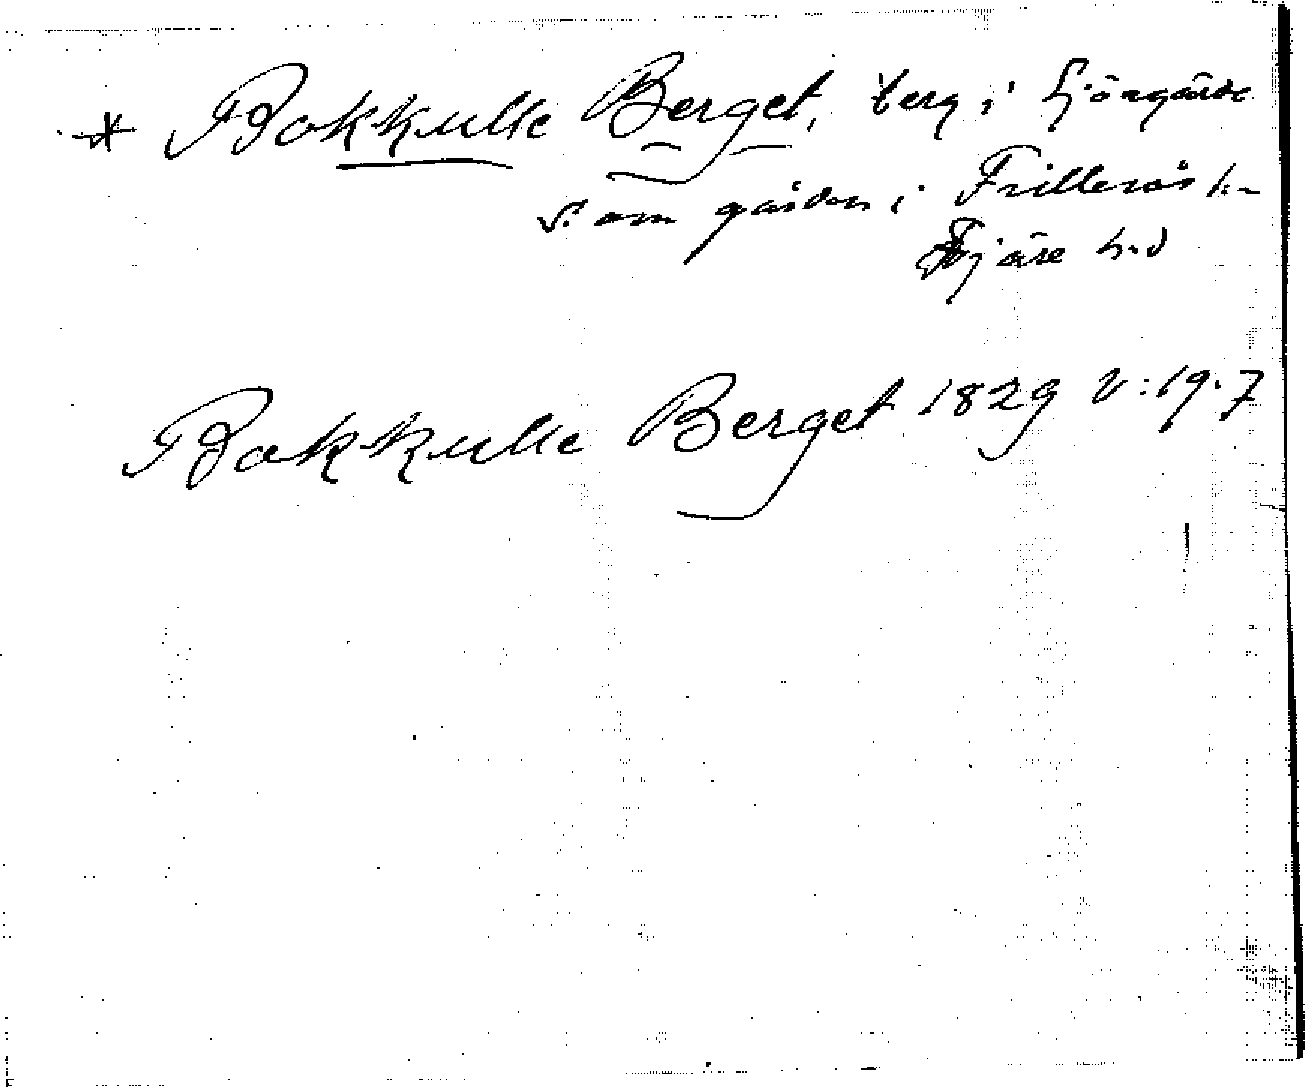 * Bokkulle Berget, berg i Ljöngårde
S. om gården i Frillesås sn
Fjäre hd
Bokkulle Berget 1829 V:19.7